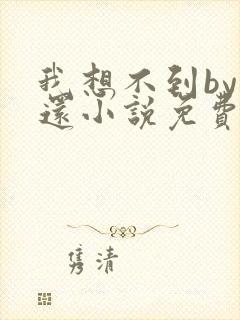 我想不到by
還小說免費
隽清